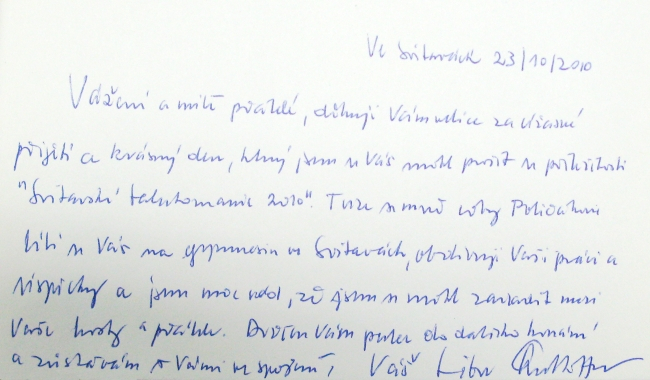 Ve Svitavách 23/10/2010
Vážení a milí přátelé, děkuji Vám velice za úžasné
přijetí a krásný den, který jsem u Vás mohl prožít u příležitosti
"Svitavské 2010". Tuze se mně
líbí u Vás na gymnasiu ve Svitavách, obdivuji Vaši práci a
úspěchy a jsem moc rád, že jsem se mohl zařadit mezi
Vaše hosty a přátele. Držím Vám palce do dalšího konání
a zůstávám s Vámi ve spojení, Váš Libor